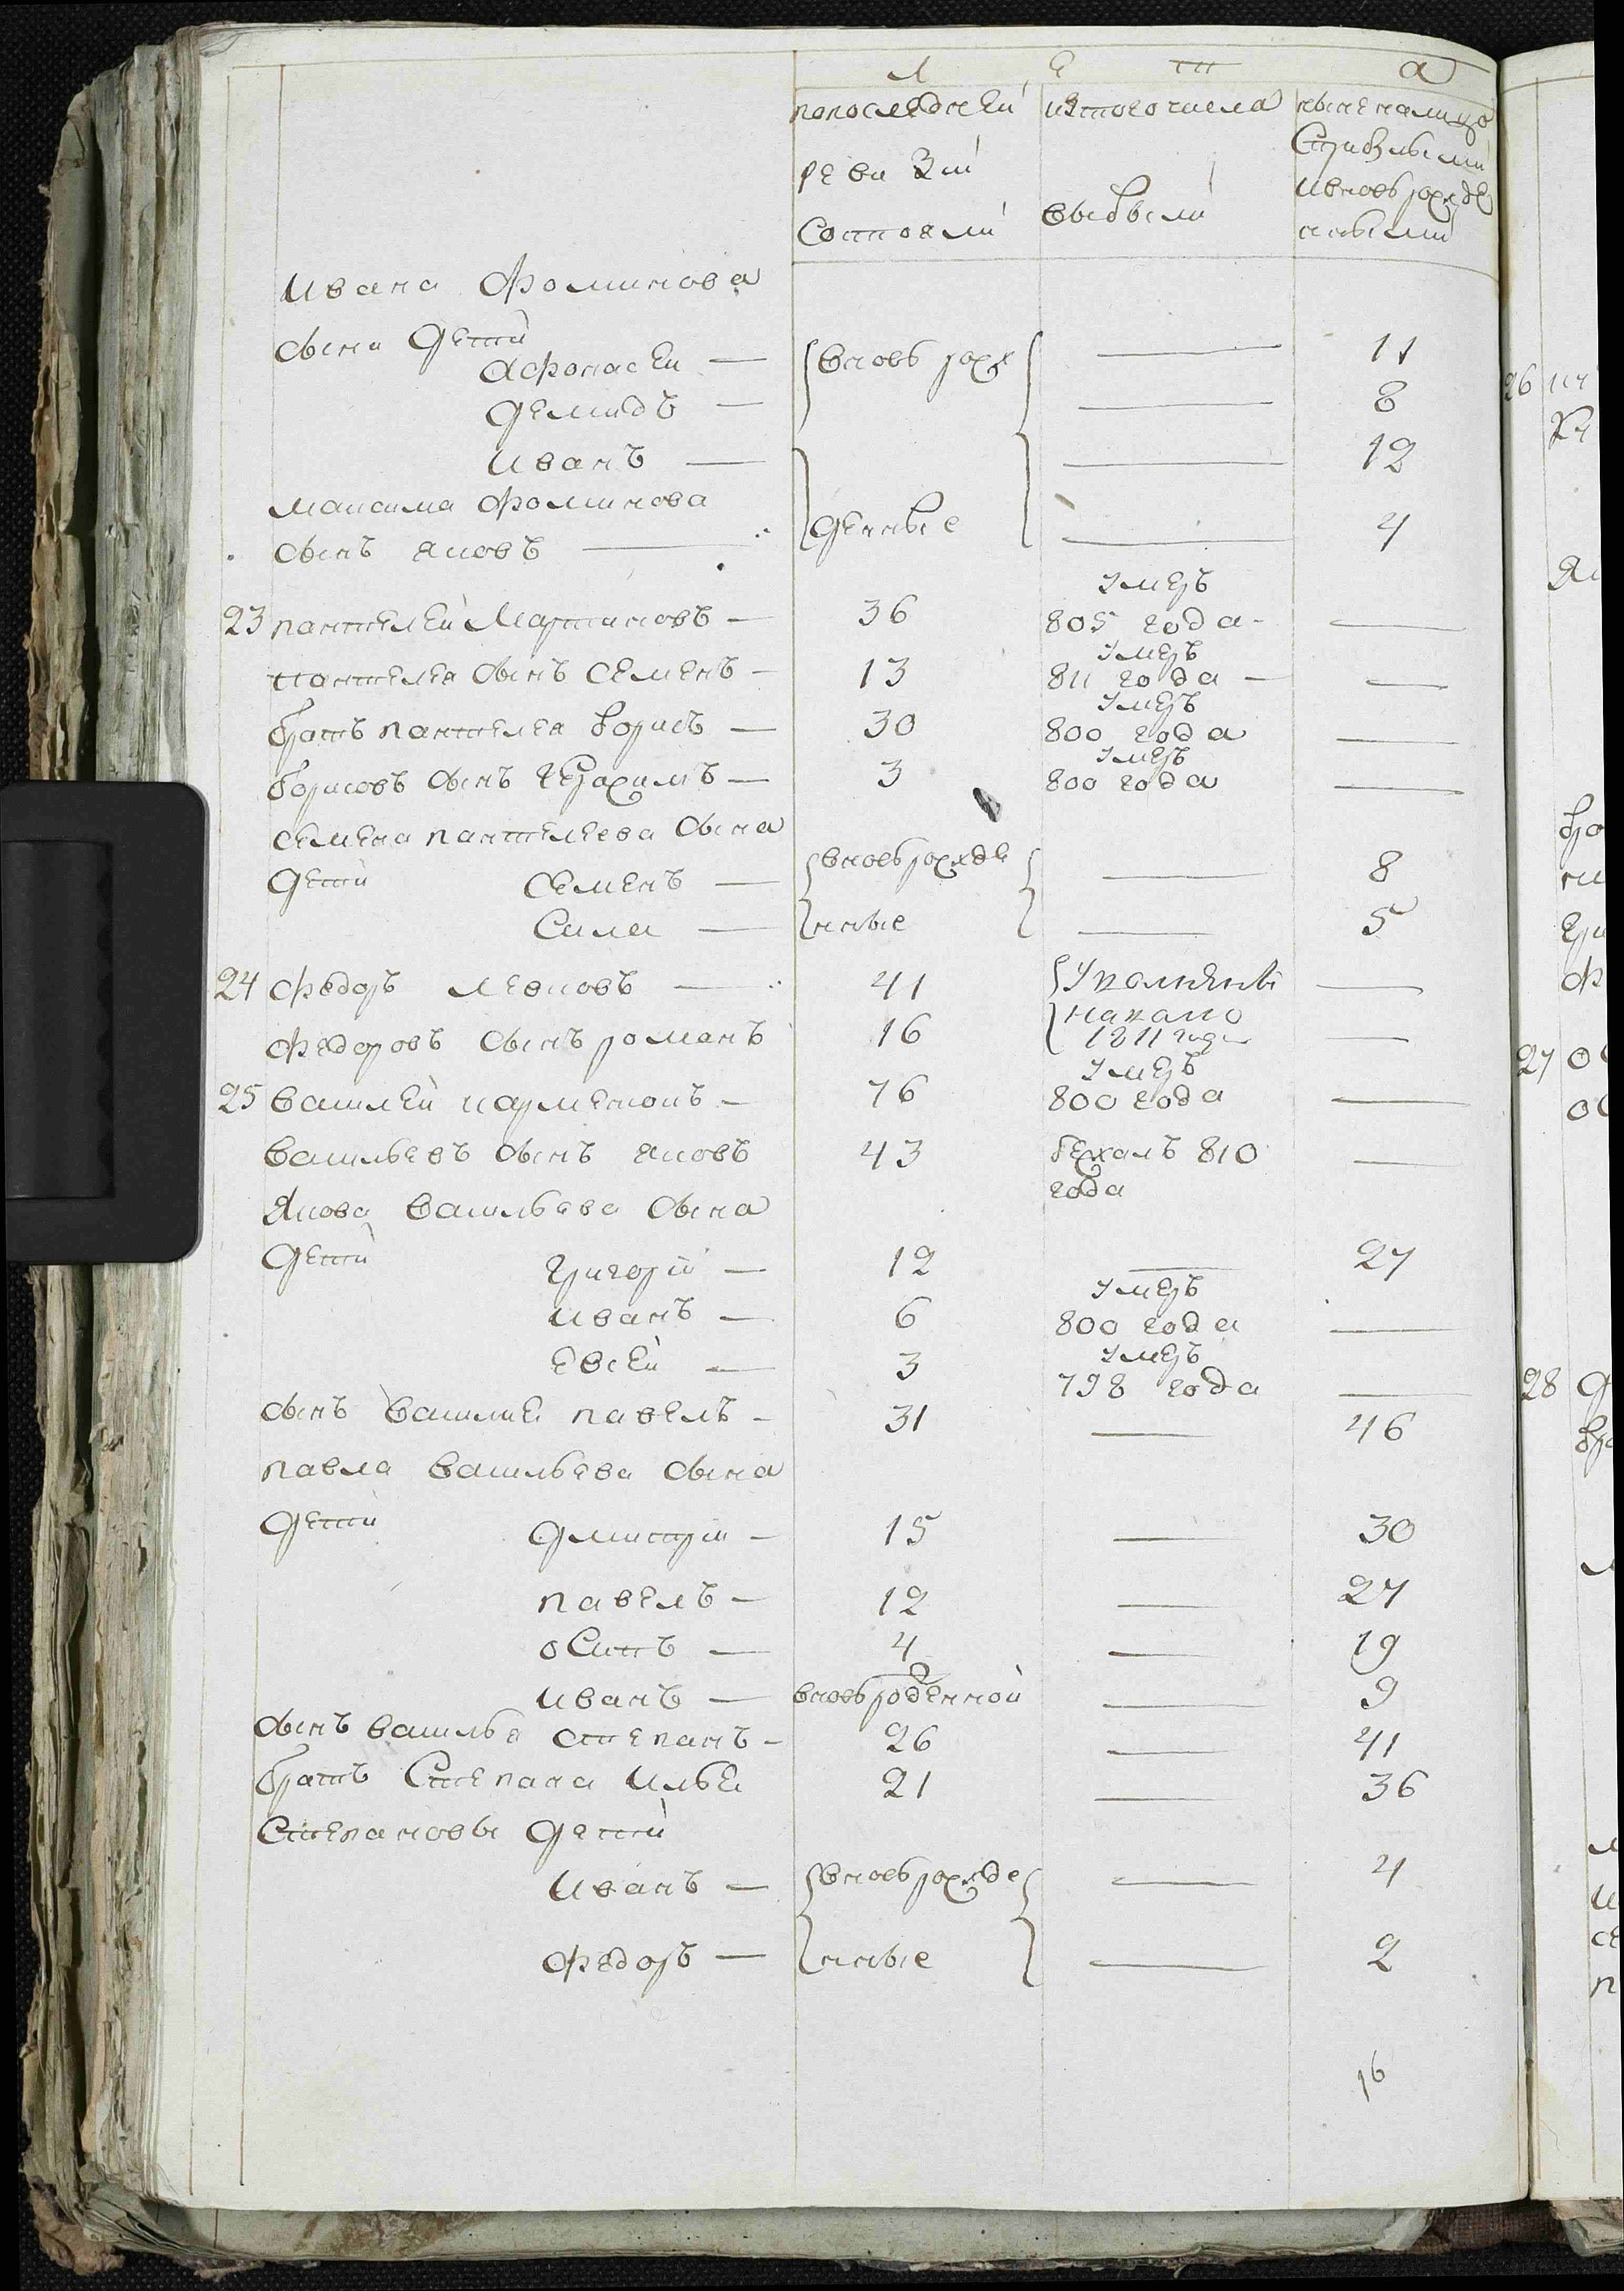 Л Е т а
попоследней изтогочисла ныненалицо
ревизии выбыли Сприбылыми
Состояли ивновь рожде
нными
Ивана Фоминова
сына дети
Афонасеи — вновь рож — 11
демидъ — — 8
иванъ — — 12
максима Фоминова
сынъ яковъ — денные — 4
умеръ
23 пантелей Мартиновъ — 36 805 года —
умеръ
пантелея сынъ Семенъ — 13 811 года —
умеръ
братъ пантелея борисъ — 30 800 года —
умеръ
борисовъ сынъ герахимъ — 3 800 года —
семена пантелеева сына
дети Семенъ — вновь рожде — 8
Сила — нные — 5
24 Федоръ левковъ — 41 —
Федоровъ сынъ романъ 16 1811 года —
умеръ
25 Василей парменовъ — 76 800 года —
Васильевъ сынъ яковъ 43 бежалъ 810 —
года
Якова Васильева сына
дети григорий — 12 — 27
умеръ
иванъ — 6 800 года —
умеръ
евсей — 3 798 года —
сынъ Василия павелъ — 31 — 46
павла Васильева сына
дети дмитрий — 15 — 30
павелъ — 12 — 27
оСипъ — 4 — 19
иванъ — вновь рожденной — 9
сынъ василья степанъ — 26 — 41
братъ Степана Илья 21 — 36
Степановы дети
иванъ — вновь рожде — 4
Федоръ — нные — 2
16
26
27
28